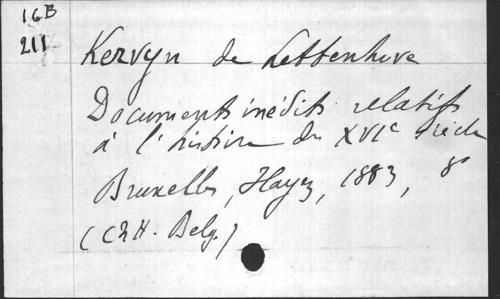 16B
211
Kervyn de Lettenhove
Documents inédits relatifs
à l'histoire du XVIe siècle
Bruxelles, Hayez, 1883, 8°
(CRH. Belg.)